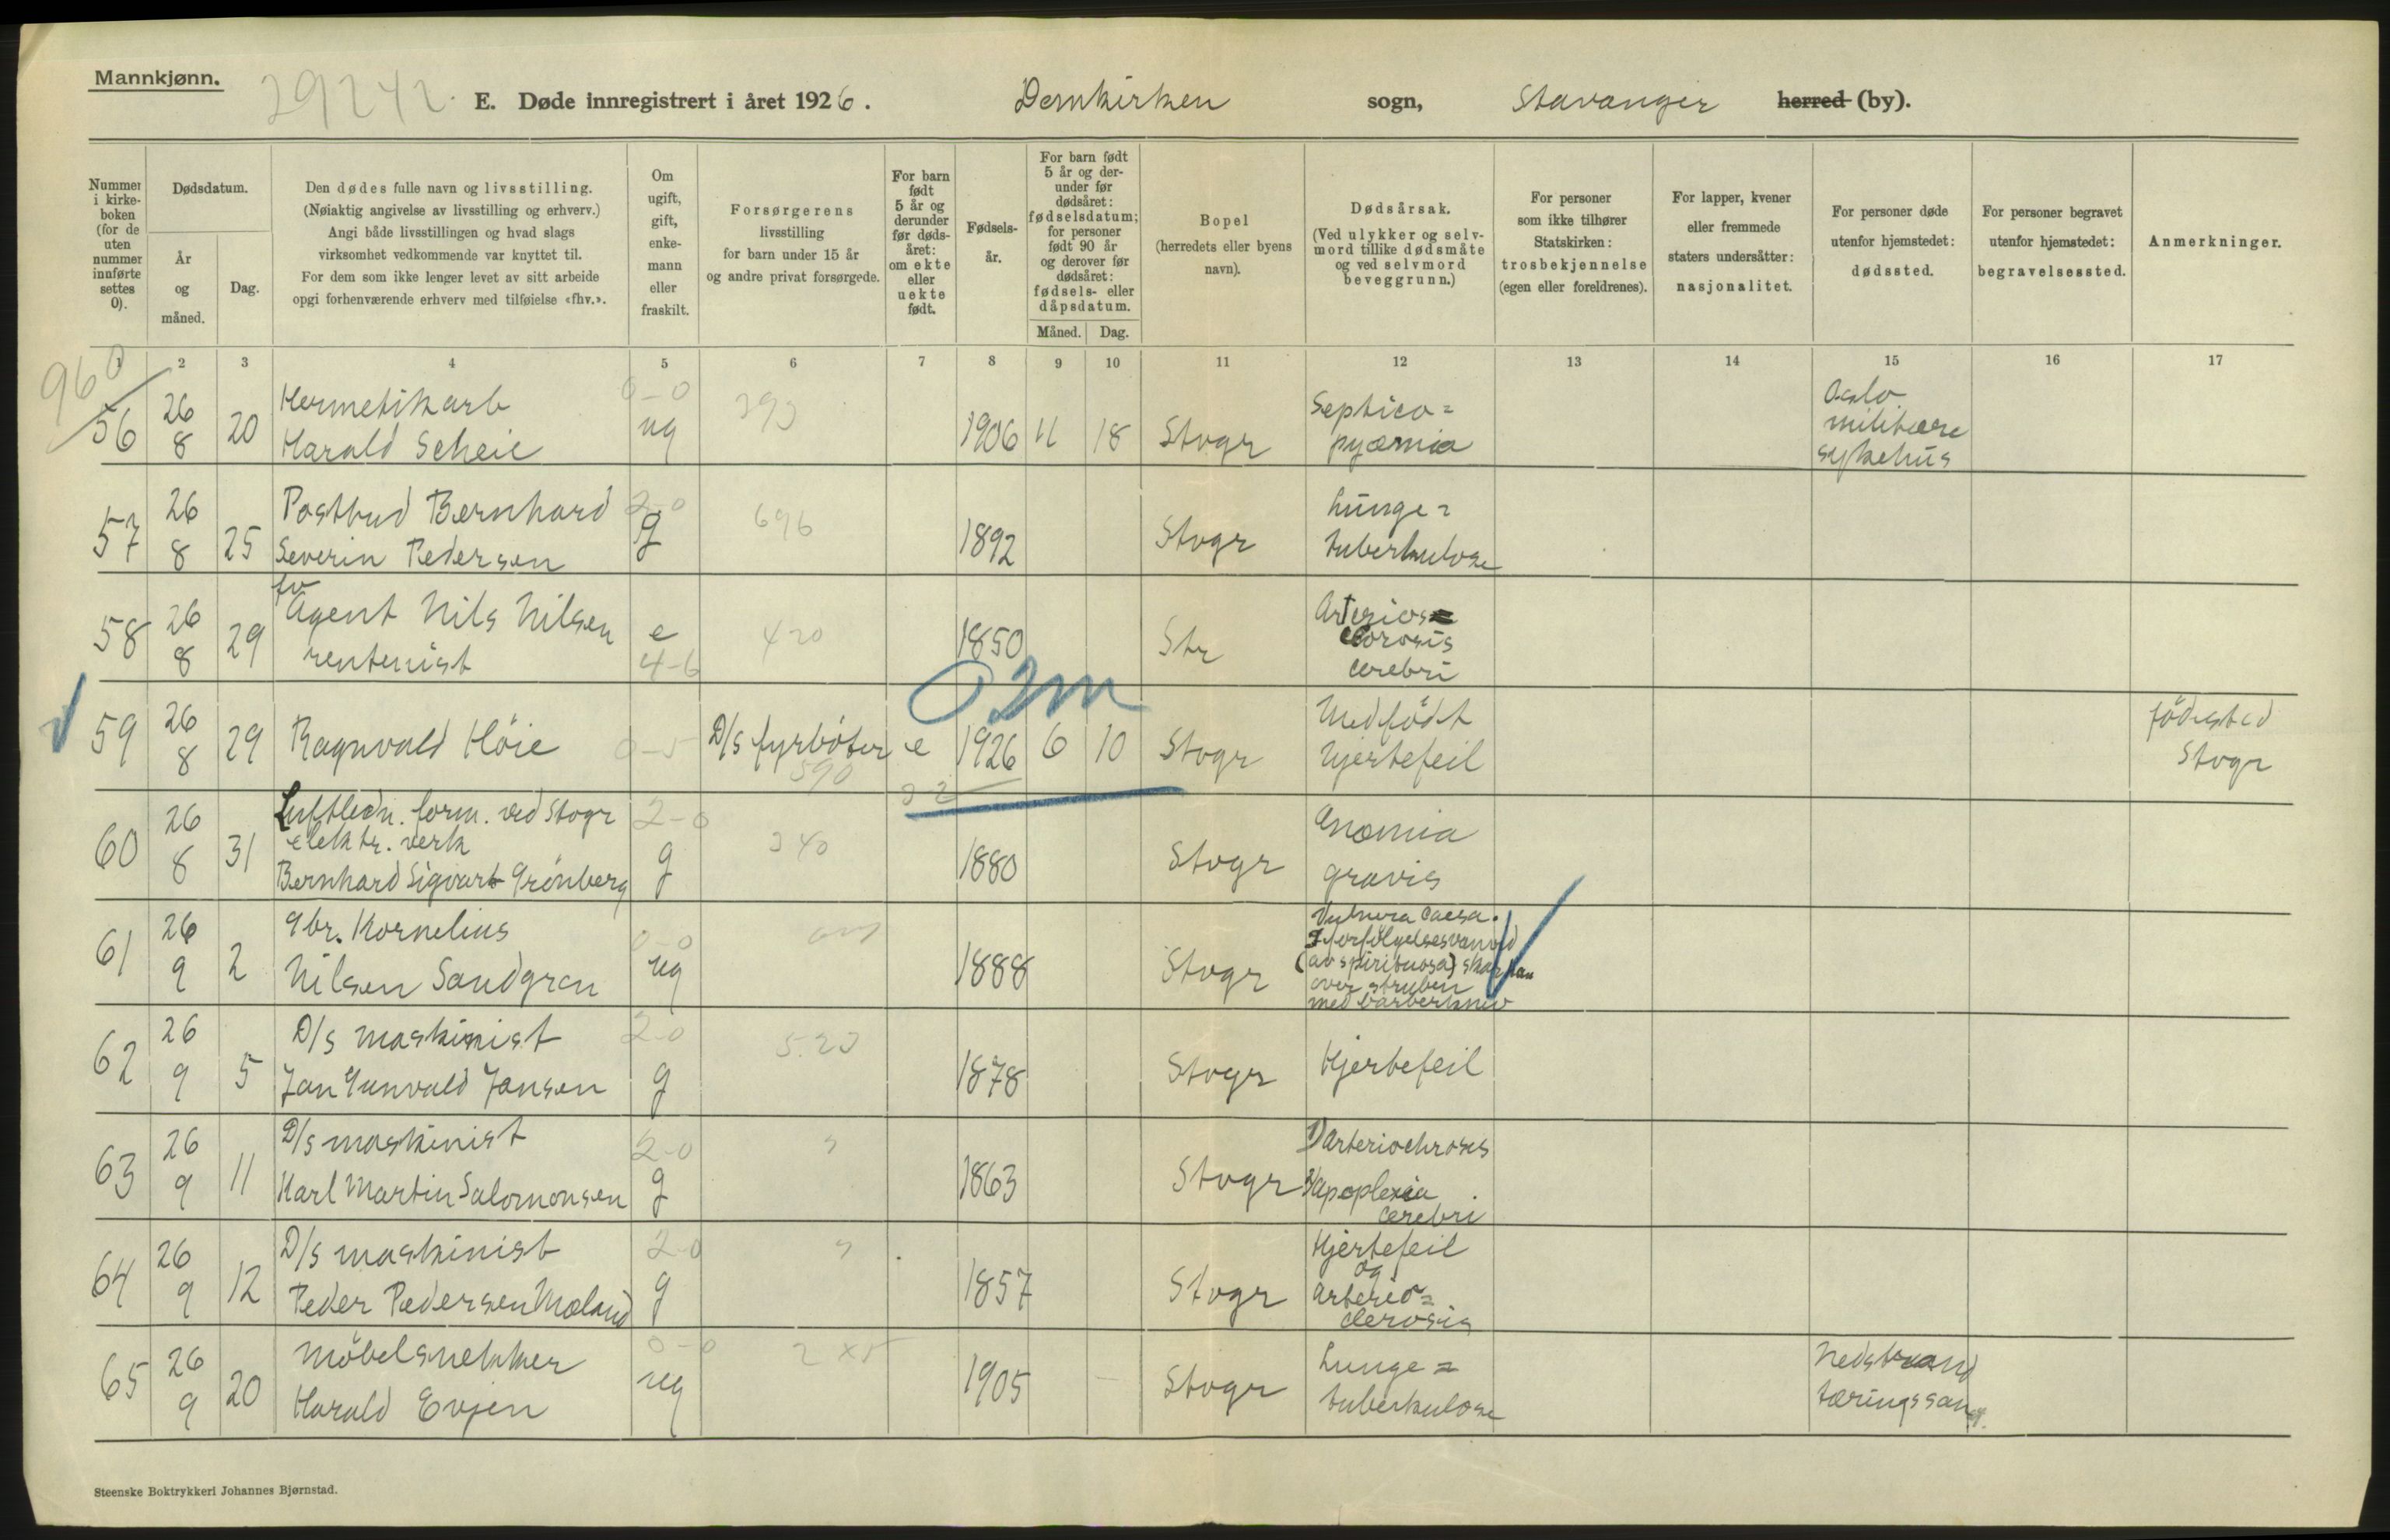 Mannkjønn.
29242.
E. Døde innregistrert i året 1926.
Domkirken sogn, Stavanger herred (by).
Nummer i kirkeboken (for de uten nummer innførte settes 0).
Dødsdatum.
År og måned.
Dag.
Den dødes fulle navn og livsstilling.
(Nøiaktig angivelse av livsstilling og erhverv.)
Angi både livsstillingen og hvad slags
virksomhet vedkommende var knyttet til.
For dem som ikke lenger levet av sitt arbeide
opgi forhenværende erhverv med tilføielse «fhv.».
Om ugift, gift, enkemann eller fraskilt.
Forsørgerens
livsstilling
for barn under 15 år
og andre privat forsørgede.
For barn født 5 år og derunder før dødsåret: om ekte eller uekte født.
Fødselsår.
For barn født 5 år og derunder før dødsåret: fødselsdatum; for personer født 90 år og derover før dødsåret: fødsels- eller dåpsdatum.
Måned. Dag.
Bopel
(herredets eller byens
navn).
Dødsårsak.
(Ved ulykker og selvmord tillike dødsmåte og ved selvmord beveggrunn.)
For personer
som ikke tilhører
Statskirken:
trosbekjennelse
(egen eller foreldrenes).
For lapper, kvener
eller fremmede
staters undersåtter:
nasjonalitet.
For personer døde
utenfor hjemstedet:
dødssted.
For personer begravet
utenfor hjemstedet:
begravelsessted.
Anmerkninger.
1 2 3 4 5 6 7 8 9 10 11 12 13 14 15 16 17
960
56 26 8 20 Hermetikarb Harald Scheie 0-0 ug 393 1906 11 18 Stvgr Septico= pyæmia Oslo militære sykehus
57 26 8 25 Postbud Bernhard Severin Pedersen 2-0 g 696 1892 Stvgr Lunge= tuberkulose
58 26 8 29 fv Agent Nils Nilsen rentenist e 4-6 420 1850 Str Arterios= clorosis cerebri
0 2m
59 26 8 29 Ragnvald Höie 0-5 D/s fyrböter 590 e 1926 6 10 Stvgr Medfödt Hjertefeil födested Stvgr
60 26 8 31 Luftledn. form. ved Stvgr elektr. verk Bernhard Sigvart Grönberg 2-0 g 340 1880 Stvgr Anæmia gravis
61 26 9 2 gbr. Kornelius Nilsen Sandgren 0-0 ug 1888 Stvgr Vulnera caesa. I forfölgelsesvanvid (av spirituosa) skar han over struben med barberkniv
62 26 9 5 D/s maskinist Jan Gunvald Jansen 2-0 g 520 1878 Stvgr Hjertefeil
63 26 9 11 D/s maskinist Karl Martin Salomonsen 2-0 g 1863 Stvgr 1) Arterioclerosis 2) apoplexia cerebri
64 26 9 12 D/s maskinist Peder Pedersen Mæland 2-0 g 1857 Stvgr Hjertefeil og arterio= clerosis
65 26 9 20 Möbelsnekker Harald Evjen 0-0 ug 1905 Stvgr Lunge= tuberkulose Nedstrand tæringssan.
Steenske Boktrykkeri Johannes Bjørnstad.